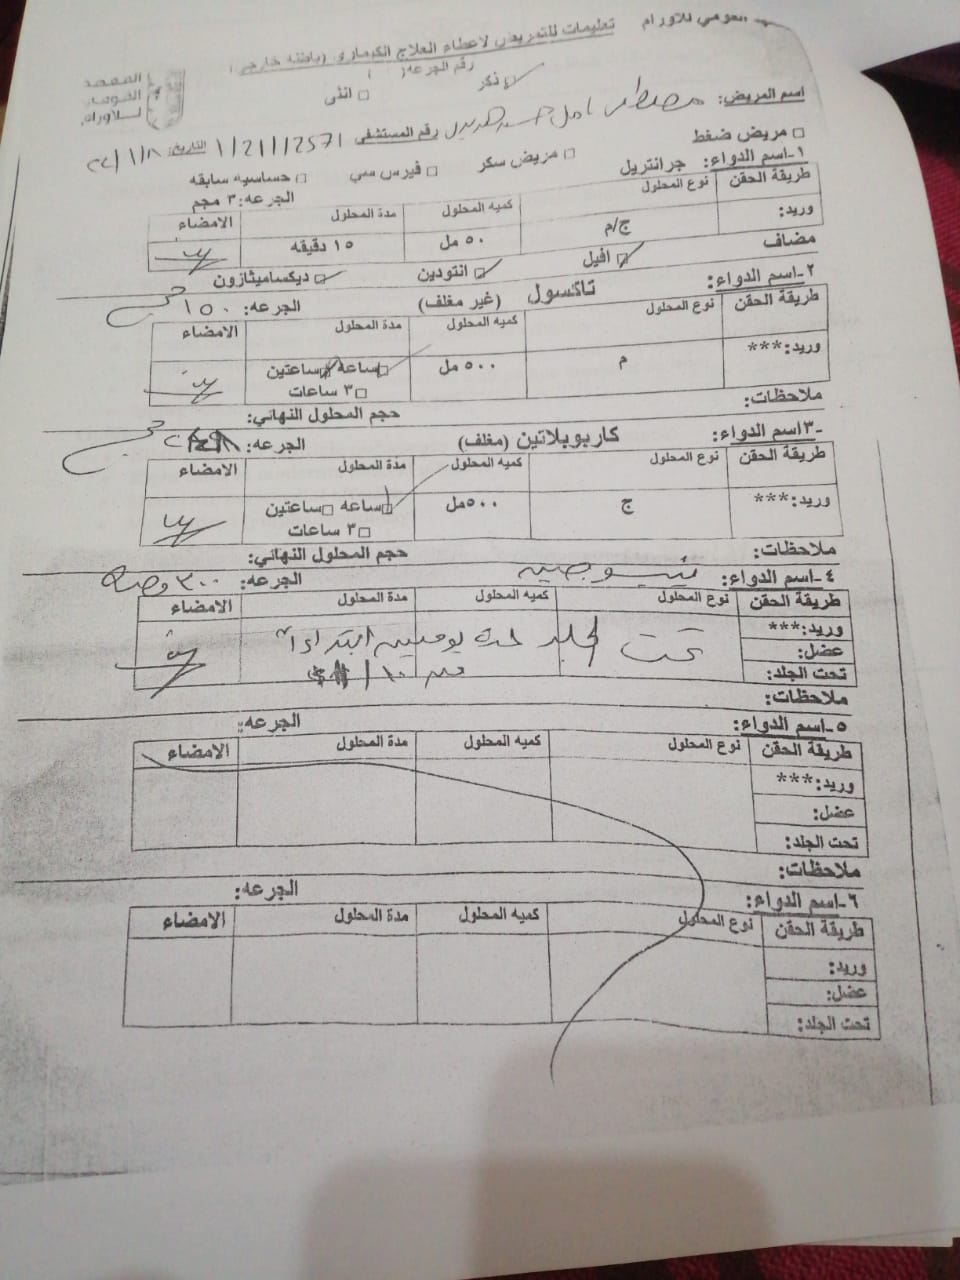 القومي للاورام
تعليمات للتمريض لاعطاء العلاج الكيماوي (باطنه خارجي)
المعهد القومي للأورام
رقم الجرعه( )
ذكر ☑ انثى □
اسم المريض: مصطفى رقم المستشفى 1/21/12571 التاريخ:
□ مريض ضغط □ مريض سكر □ فيرس سي □ حساسيه سابقه
١-اسم الدواء: جرانتريل الجرعه: ٣ مجم
طريقة الحقن نوع المحلول كميه المحلول مدة المحلول الامضاء
وريد: ج/م ٥٠ مل ١٥ دقيقه
مضاف ☑ افيل ☑ انتودين ☑ ديكساميثازون
٢-اسم الدواء: تاكسول (غير مغلف) الجرعه: ١٥٠
طريقة الحقن نوع المحلول كميه المحلول مدة المحلول الامضاء
وريد:*** م ٥٠٠ مل □ساعه □ساعتين
□٣ ساعات
ملاحظات: حجم المحلول النهائي:
-٣اسم الدواء: كاربوبلاتين (مغلف) الجرعه:
طريقة الحقن نوع المحلول كميه المحلول مدة المحلول الامضاء
وريد:*** ج ٥٠٠مل □ساعه □ساعتين
□٣ ساعات
ملاحظات: حجم المحلول النهائي:
٤-اسم الدواء: الجرعه: ٣٠٠
طريقة الحقن نوع المحلول كميه المحلول مدة المحلول الامضاء
وريد:***
عضل: تحت الجلد يوميين ابتداءا
تحت الجلد: من ١٠/
ملاحظات:
٥-اسم الدواء: الجرعه:
طريقة الحقن نوع المحلول كميه المحلول مدة المحلول الامضاء
وريد:***
عضل:
تحت الجلد:
ملاحظات:
٦-اسم الدواء: الجرعه:
طريقة الحقن نوع المحلول كميه المحلول مدة المحلول الامضاء
وريد:
عضل:
تحت الجلد: